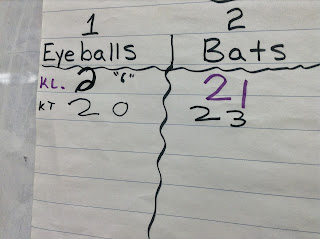 1 2
Eyeballs Bats
KL. 2 "6" 21
KT 20 23